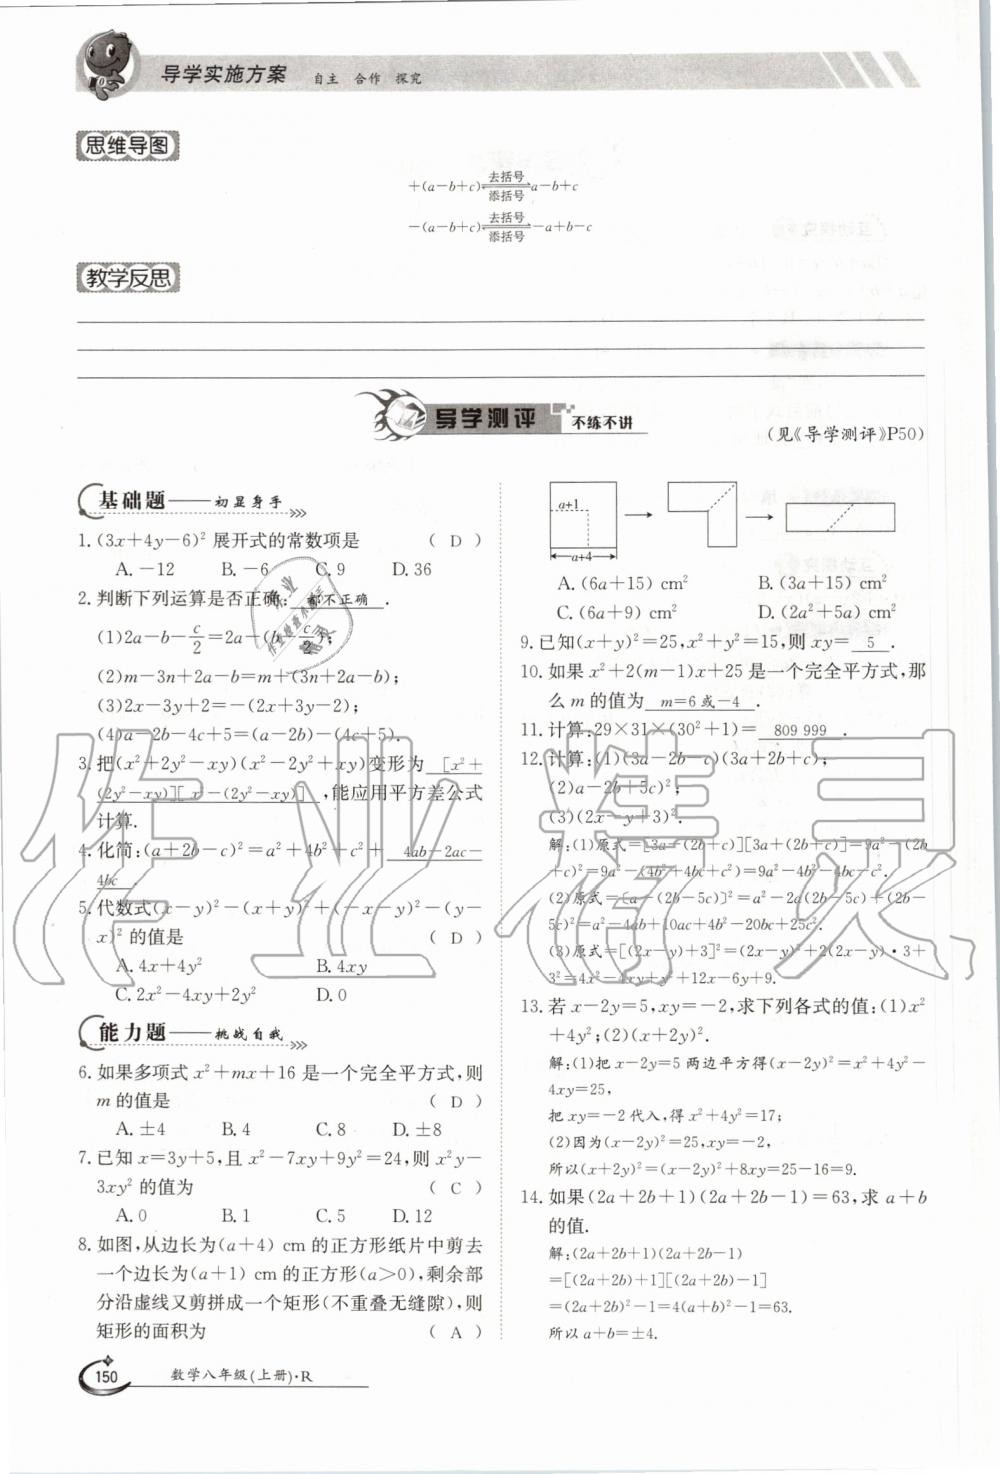 导学实施方案 自主 合作 探究
思维导图
+(a-b+c) 去括号 添括号 a-b+c
-(a-b+c) 去括号 添括号 -a+b-c
教学反思
导学测评 不练不讲
(见《导学测评》P50)
基础题——初显身手
1. (3x+4y-6)² 展开式的常数项是 ( D )
A. -12 B. -6 C. 9 D. 36
2. 判断下列运算是否正确: 都不正确 .
(1)2a-b-c/2=2a-(b-c/2);
(2)m-3n+2a-b=m+(3n+2a-b);
(3)2x-3y+2=-(2x+3y-2);
(4)a-2b-4c+5=(a-2b)-(4c+5).
3. 把(x²+2y²-xy)(x²-2y²+xy)变形为 [x²+
(2y²-xy)][x²-(2y²-xy)] ,能应用平方差公式
计算.
4. 化简:(a+2b-c)²=a²+4b²+c²+ 4ab-2ac-
4bc .
5. 代数式(x-y)²-(x+y)²+(-x-y)²-(y-
x)² 的值是 ( D )
A. 4x+4y² B. 4xy
C. 2x²-4xy+2y² D. 0
能力题——挑战自我
6. 如果多项式 x²+mx+16 是一个完全平方式,则
m 的值是 ( D )
A. ±4 B. 4 C. 8 D. ±8
7. 已知 x=3y+5,且 x²-7xy+9y²=24,则 x²y-
3xy² 的值为 ( C )
A. 0 B. 1 C. 5 D. 12
8. 如图,从边长为(a+4) cm 的正方形纸片中剪去
一个边长为(a+1) cm 的正方形(a>0),剩余部
分沿虚线又剪拼成一个矩形(不重叠无缝隙),则
矩形的面积为 ( A )
a+1
a+4
A. (6a+15) cm² B. (3a+15) cm²
C. (6a+9) cm² D. (2a²+5a) cm²
9. 已知(x+y)²=25,x²+y²=15,则 xy= 5 .
10. 如果 x²+2(m-1)x+25 是一个完全平方式,那
么 m 的值为 m=6 或-4 .
11. 计算:29×31×(30²+1)= 809 999 .
12. 计算:(1)(3a-2b-c)(3a+2b+c);
(2)(a-2b+5c)²;
(3)(2x-y+3)².
解:(1)原式=[3a-(2b+c)][3a+(2b+c)]=9a²-(2b
+c)²=9a²-(4b²+4bc+c²)=9a²-4b²-4bc-c².
(2)原式=[a-(2b-5c)]²=a²-2a(2b-5c)+(2b-
5c)²=a²-4ab+10ac+4b²-20bc+25c².
(3)原式=[(2x-y)+3]²=(2x-y)²+2(2x-y)·3+
3²=4x²-4xy+y²+12x-6y+9.
13. 若 x-2y=5,xy=-2,求下列各式的值:(1)x²
+4y²;(2)(x+2y)².
解:(1)把 x-2y=5 两边平方得(x-2y)²=x²+4y²-
4xy=25,
把 xy=-2 代入,得 x²+4y²=17;
(2)因为(x-2y)²=25,xy=-2,
所以(x+2y)²=(x-2y)²+8xy=25-16=9.
14. 如果(2a+2b+1)(2a+2b-1)=63,求 a+b
的值.
解:(2a+2b+1)(2a+2b-1)
=[(2a+2b)+1][(2a+2b)-1]
=(2a+2b)²-1=4(a+b)²-1=63.
所以 a+b=±4.
150 数学八年级(上册)·R
作业精灵